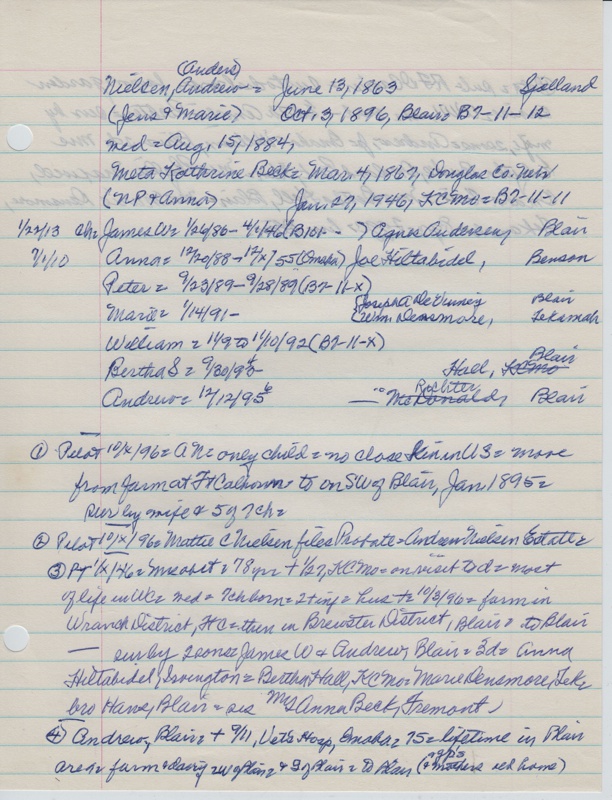 (Anders)
Nielsen, Andrew = June 13, 1863 Sjelland
(Jens & Marie) Oct. 3, 1896, Blair = B7-11-12
med = Aug. 15, 1884,
Meta Kathrine Beck = Mar. 4, 1867, Douglas Co. Nebr
(NP & Anna) Jan. 27, 1946, KCMo = B7-11-11
1/22/13 ch = James W = 1/26/86 - 4/1/46 (B101- ) Agnes Andersen, Blair
7/1/10 Anna = 12/20/88 - 12/x/55 (Omaha) Joe Hiltabidel, Benson
Peter = 9/23/89 - 9/28/89 (B7-11-X)
Marie = 1/14/91 - (Joseph A DeVinney Blair
(Wm. Densmore, Tekamah
William = 1/9 to 1/10/92 (B7-11-X)
Bertha S = 9/30/93- Hall, KCMo Blair
Andrew = 12/12/95 — McDonald, Blair
① Pilot 10/x/96 = AN = only child = no close kin in US = move
from farm at Ft Calhoun to on SW of Blair, Jan. 1895 =
sur by wife & 5 of 7 ch =
② Pilot 10/x/96 = Mattie C Nielsen files Probate = Andrew Nielsen Estate =
③ PT 1/x/46 = = 78 yrs + 1/27, KCMo = on visit to d = most
of life in WC = med = 7 ch born = 2 + inf = hus + = 10/3/96 = farm in
District, HC = then in Brewster District, Blair = to Blair
— sur by 2 sons = James W & Andrew, Blair = 3d = Anna
Hiltabidel, Irvington = Bertha Hall, KCMo = Marie Densmore, Tek =
bro Hans, Blair = sis Mrs Anna Beck, Fremont
④ Andrew, Blair = + 9/11, Vet's Hosp, Omaha = 75 = lifetime in Blair
area = farm & dairy sw of Blair & S of Blair = to Blair (gp's
& mothers old home)